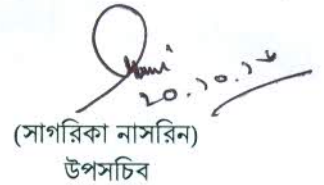 ২০.১০.১৮
(সাগরিকা নাসরিন)
উপসচিব